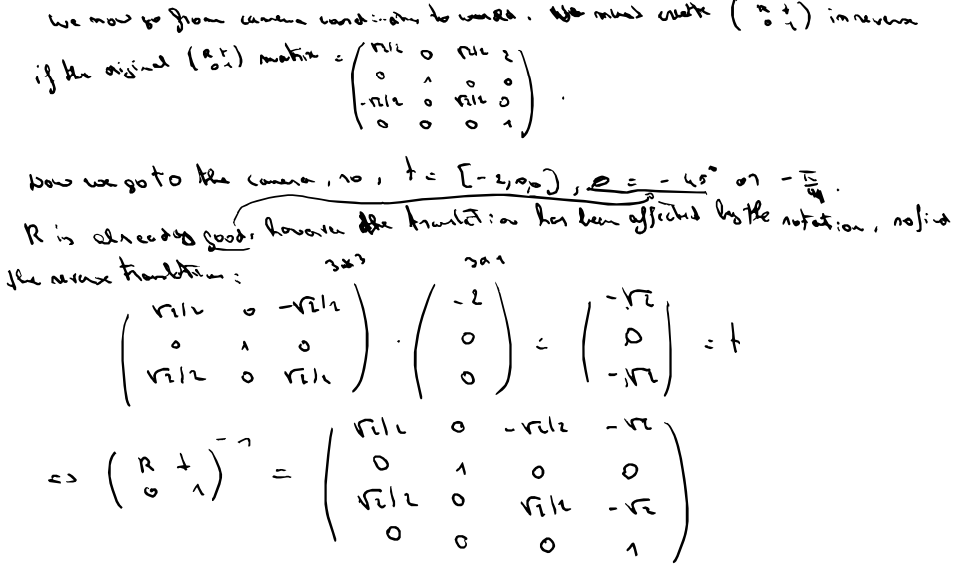 we now go from camera coordinates to world. We must create ( R t ; 0 1 ) in reverse
if the original ( R t ; 0 1 ) matrix = ( √2/2 0 √2/2 2 ; 0 1 0 0 ; -√2/2 0 √2/2 0 ; 0 0 0 1 ) .
Now we go to the camera, so, t = [-2,0,0], θ = - 45° or - π/4.
R is already good, however the translation has been affected by the rotation, so find
the reverse translation:
3x3 3x1
( √2/2 0 -√2/2 ; 0 1 0 ; √2/2 0 √2/2 ) · ( -2 ; 0 ; 0 ) = ( -√2 ; 0 ; -√2 ) = t
=> ( R t ; 0 1 )^-1 = ( √2/2 0 -√2/2 -√2 ; 0 1 0 0 ; √2/2 0 √2/2 -√2 ; 0 0 0 1 )